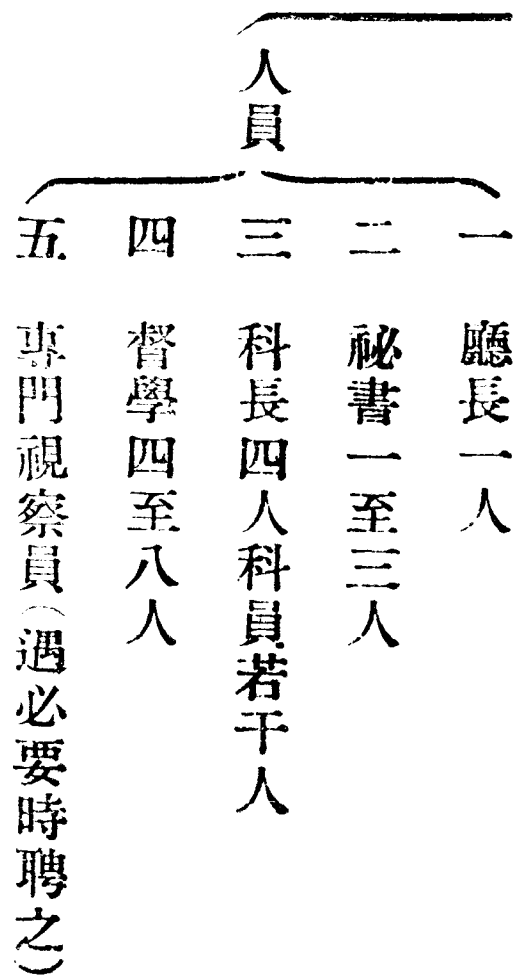 人員
一　廳長一人
二　祕書一至三人
三　科長四人科員若干人
四　督學四至八人
五　專門視察員（遇必要時聘之）